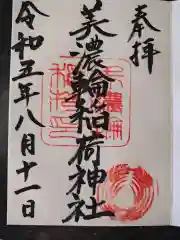 奉拝
美濃輪稲荷神社
令和五年八月十一日